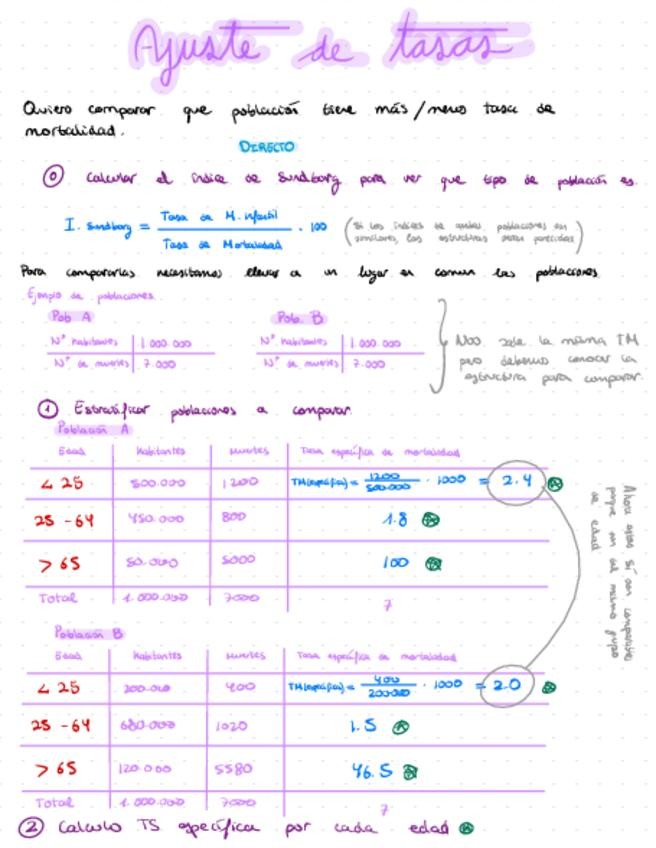 Ajuste de tasas
Quiero comparar que población tiene más/menos tasa de
mortalidad.
DIRECTO
⓪ Calcular el índice de Sundbarg para ver que tipo de población es.
I. Sundbarg = Tasa de M. infantil / Tasa de Mortalidad · 100 (Si los índices de ambas poblaciones son
similares, las estructuras serán parecidas)
Para compararlas necesitamos llevar a un lugar en común las poblaciones
Ejemplo de poblaciones
Pob A Pob. B
Nº habitantes 1.000.000 Nº habitantes 1.000.000
Nº de muertes 7.000 Nº de muertes 7.000
Nos sale la misma TM
pero debemos conocer la
estructura para comparar.
① Estratificar poblaciones a comparar
Población A
Edad Habitantes Muertes Tasa específica de mortalidad
< 25 500.000 1200 TM(específica) = 1200 / 500.000 · 1000 = 2.4
25 - 64 450.000 800 1.8
> 65 50.000 5000 100
Total 1.000.000 7000 7
Ahora estas sí son comparables
porque son del mismo grupo
de edad
Población B
Edad Habitantes Muertes Tasa específica de mortalidad
< 25 200.000 400 TM(específica) = 400 / 200.000 · 1000 = 2.0
25 - 64 680.000 1020 1.5
> 65 120.000 5580 46.5
Total 1.000.000 7000 7
② Calculo TS específica por cada edad